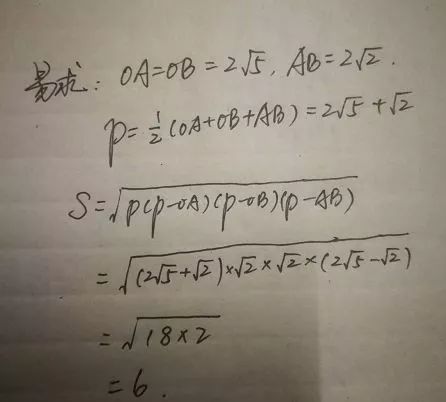 易求: OA=OB=2√5, AB=2√2.
p=½(OA+OB+AB)=2√5+√2
S=√(p(p-OA)(p-OB)(p-AB))
=√((2√5+√2)×√2×√2×(2√5-√2))
=√(18×2)
=6.